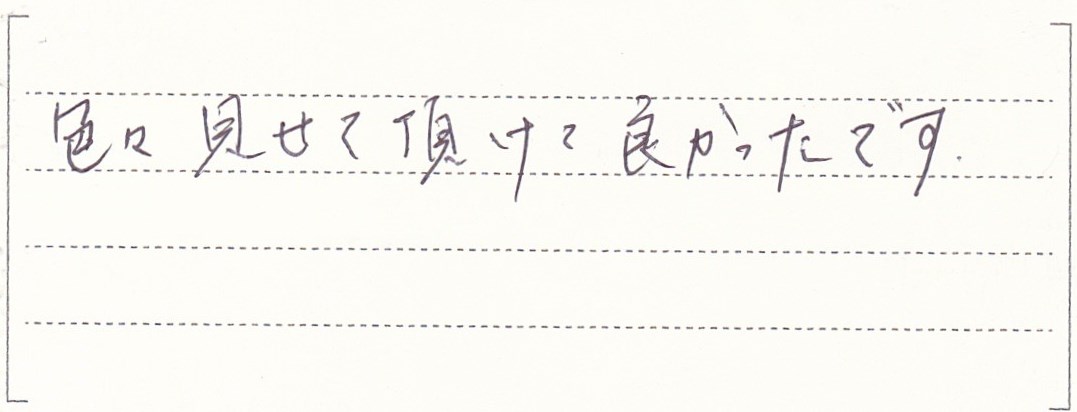 色々見せて頂けて良かったです.